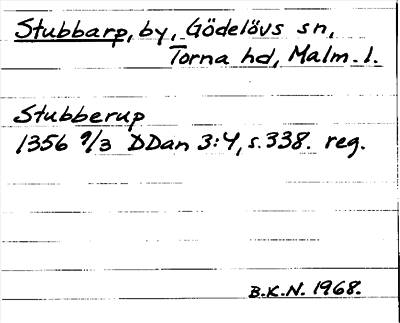 Stubbarp, by, Gödelövs sn,
Torna hd, Malm. l.
Stubberup
1356 9/3 DDan 3:4, s. 338. reg.
B.K.N. 1968.